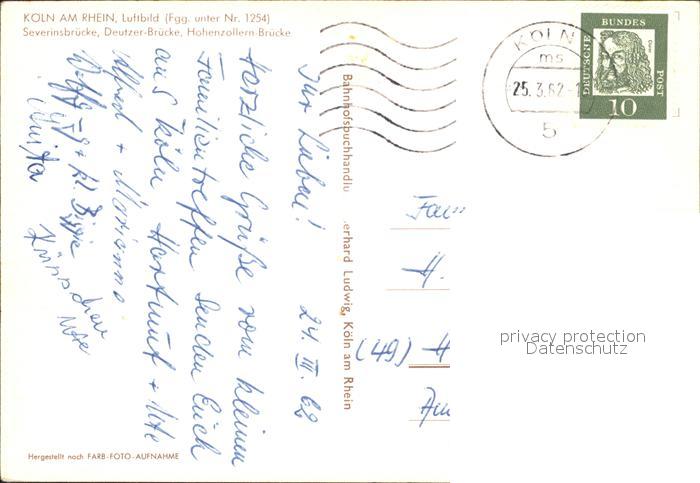 KÖLN AM RHEIN, Luftbild (Fgg. unter Nr. 1254)
Severinsbrücke, Deutzer-Brücke, Hohenzollern-Brücke
Ihr Lieben! 24. III. 62
Herzliche Grüße vom kleinen
Familientreffen senden Euch
aus Köln Hartmut + Ute
Alfred + Marianne
Bahnhofsbuchhandlu erhard Ludwig, Köln am Rhein
KÖLN
ms
25.3.62
5
DEUTSCHE BUNDES POST
10
Fam
H.
(49) H
Am
privacy protection
Datenschutz
Hergestellt nach FARB-FOTO-AUFNAHME